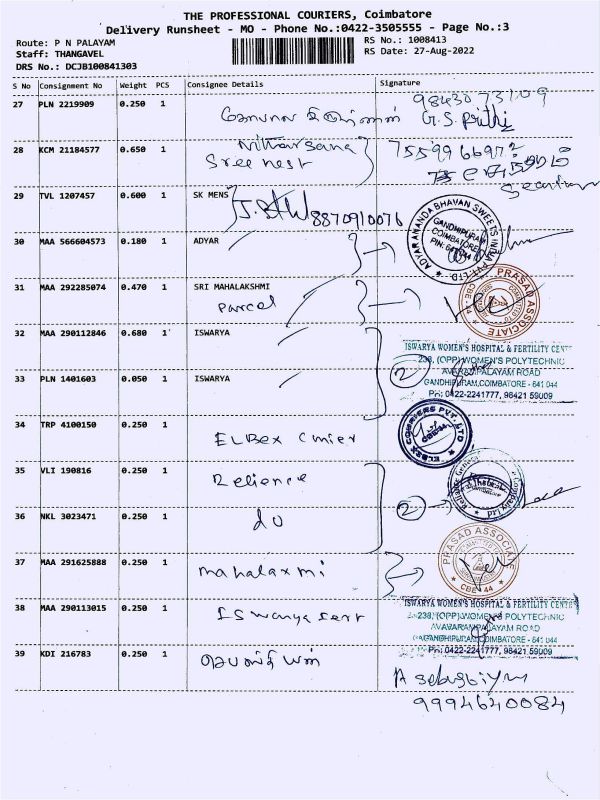 THE PROFESSIONAL COURIERS, Coimbatore
Delivery Runsheet - MO - Phone No.:0422-3505555 - Page No.:3
Route: P N PALAYAM
Staff: THANGAVEL
DRS No.: DCJB100841303
RS No.: 1008413
RS Date: 27-Aug-2022
S No Consignment No Weight PCS Consignee Details Signature
27 PLN 2219909 0.250 1 G.S. Prithi
28 KCM 21184577 0.650 1 Sree nest 7559966972
29 TVL 1207457 0.600 1 SK MENS 8870910076
30 MAA 566604573 0.180 1 ADYAR
ADYAR ANANDA BHAVAN SWEETS INDIA PVT. LTD.
GANDHIPURAM
COIMBATORE
31 MAA 292285074 0.470 1 SRI MAHALAKSHMI
Parcel
PRASAD ASSOCIATE
CBE-44
32 MAA 290112846 0.680 1 ISWARYA
33 PLN 1401603 0.050 1 ISWARYA
2
ISWARYA WOMEN'S HOSPITAL & FERTILITY CENT
238, (OPP) WOMEN'S POLYTECHNIC
AVARAMPALAYAM ROAD
GANDHIPURAM, COIMBATORE - 641 044
Ph: 0422-2241777, 98421 59009
34 TRP 4100150 0.250 1 ELBex Courier
ELBEX COURIERS PVT. LTD
35 VLI 190816 0.250 1 Relience
2
36 NKL 3023471 0.250 1 do
37 MAA 291625888 0.250 1 mahalaxmi
PRASAD ASSOCIATE
CBE-44
38 MAA 290113015 0.250 1 ISwarya fert
ISWARYA WOMEN'S HOSPITAL & FERTILITY CENTR
238, (OPP) WOMEN'S POLYTECHNIC
AVARAMPALAYAM ROAD
GANDHIPURAM, COIMBATORE - 641 044
Ph: 0422-2241777, 98421 59009
39 KDI 216783 0.250 1
9994640084